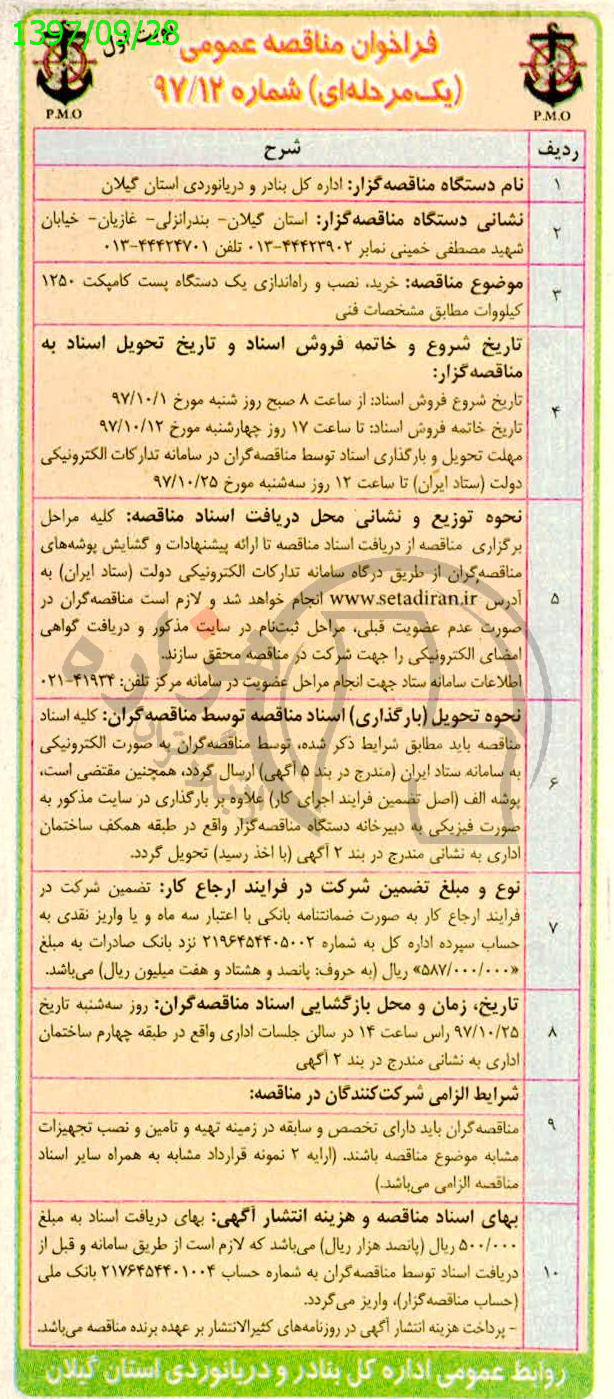 1397/09/28
نوبت اول
فراخوان مناقصه عمومی
(یک‌مرحله‌ای) شماره ۹۷/۱۲
P.M.O
P.M.O
ردیف
شرح
۱
نام دستگاه مناقصه‌گزار: اداره کل بنادر و دریانوردی استان گیلان
۲
نشانی دستگاه مناقصه‌گزار: استان گیلان- بندرانزلی- غازیان- خیابان
شهید مصطفی خمینی نمابر ۴۴۴۲۳۹۰۲-۰۱۳ تلفن ۴۴۴۲۴۷۰۱-۰۱۳
۳
موضوع مناقصه: خرید، نصب و راه‌اندازی یک دستگاه پست کامپکت ۱۲۵۰
کیلووات مطابق مشخصات فنی
۴
تاریخ شروع و خاتمه فروش اسناد و تاریخ تحویل اسناد به
مناقصه‌گزار:
تاریخ شروع فروش اسناد: از ساعت ۸ صبح روز شنبه مورخ ۹۷/۱۰/۱
تاریخ خاتمه فروش اسناد: تا ساعت ۱۷ روز چهارشنبه مورخ ۹۷/۱۰/۱۲
مهلت تحویل و بارگذاری اسناد توسط مناقصه‌گران در سامانه تدارکات الکترونیکی
دولت (ستاد ایران) تا ساعت ۱۲ روز سه‌شنبه مورخ ۹۷/۱۰/۲۵
۵
نحوه توزیع و نشانی محل دریافت اسناد مناقصه: کلیه مراحل
برگزاری مناقصه از دریافت اسناد مناقصه تا ارائه پیشنهادات و گشایش پوشه‌های
مناقصه‌گران از طریق درگاه سامانه تدارکات الکترونیکی دولت (ستاد ایران) به
آدرس www.setadiran.ir انجام خواهد شد و لازم است مناقصه‌گران در
صورت عدم عضویت قبلی، مراحل ثبت‌نام در سایت مذکور و دریافت گواهی
امضای الکترونیکی را جهت شرکت در مناقصه محقق سازند.
اطلاعات سامانه ستاد جهت انجام مراحل عضویت در سامانه مرکز تلفن: ۴۱۹۳۴-۰۲۱
۶
نحوه تحویل (بارگذاری) اسناد مناقصه توسط مناقصه‌گران: کلیه اسناد
مناقصه باید مطابق شرایط ذکر شده، توسط مناقصه‌گران به صورت الکترونیکی
به سامانه ستاد ایران (مندرج در بند ۵ آگهی) ارسال گردد، همچنین مقتضی است،
پوشه الف (اصل تضمین فرایند اجرای کار) علاوه بر بارگذاری در سایت مذکور به
صورت فیزیکی به دبیرخانه دستگاه مناقصه‌گزار واقع در طبقه همکف ساختمان
اداری به نشانی مندرج در بند ۲ آگهی (با اخذ رسید) تحویل گردد.
۷
نوع و مبلغ تضمین شرکت در فرایند ارجاع کار: تضمین شرکت در
فرایند ارجاع کار به صورت ضمانتنامه بانکی با اعتبار سه ماه و یا واریز نقدی به
حساب سپرده اداره کل به شماره ۲۱۹۶۴۵۴۴۰۵۰۰۲ نزد بانک صادرات به مبلغ
«۵۸۷/۰۰۰/۰۰۰» ریال (به حروف: پانصد و هشتاد و هفت میلیون ریال) می‌باشد.
۸
تاریخ، زمان و محل بازگشایی اسناد مناقصه‌گران: روز سه‌شنبه تاریخ
۹۷/۱۰/۲۵ راس ساعت ۱۴ در سالن جلسات اداری واقع در طبقه چهارم ساختمان
اداری به نشانی مندرج در بند ۲ آگهی
۹
شرایط الزامی شرکت‌کنندگان در مناقصه:
مناقصه‌گران باید دارای تخصص و سابقه در زمینه تهیه و تامین و نصب تجهیزات
مشابه موضوع مناقصه باشند. (ارایه ۲ نمونه قرارداد مشابه به همراه سایر اسناد
مناقصه الزامی می‌باشد.)
۱۰
بهای اسناد مناقصه و هزینه انتشار آگهی: بهای دریافت اسناد به مبلغ
۵۰۰/۰۰۰ ریال (پانصد هزار ریال) می‌باشد که لازم است از طریق سامانه و قبل از
دریافت اسناد توسط مناقصه‌گران به شماره حساب ۲۱۷۶۴۵۴۴۰۱۰۰۴ بانک ملی
(حساب مناقصه‌گزار)، واریز می‌گردد.
- پرداخت هزینه انتشار آگهی در روزنامه‌های کثیرالانتشار بر عهده برنده مناقصه می‌باشد.
روابط عمومی اداره کل بنادر و دریانوردی استان گیلان